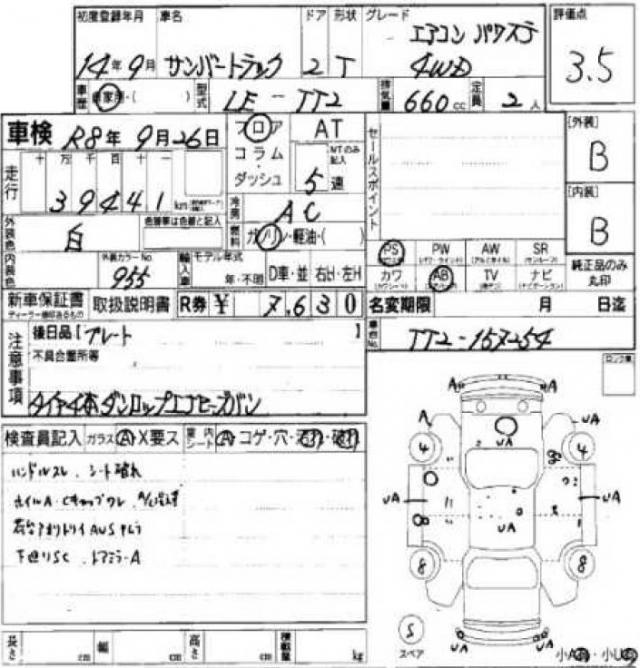 初度登録年月 車名 ドア 形状 グレード 評価点
14年9月 サンバートラック 2 T エアコン パワステ 4WD 3.5
車歴 自家用・( ) 型式 LE-TT2 排気量 660cc 定員 2人
車検 R8年9月26日 フロア AT セールスポイント [外装]
コラム・ MTのみ記入 B
ダッシュ 5速
走行 十 万 千 百 十 一
39441 km 冷房 AC [内装]
外装色 白 色替車は色替と記入 燃料 ガソリン・軽油・( ) B
内装色 外装カラーNo. 955 輸入車 モデル年式 年・不明 D車・並 右H・左H
PS PW AW SR 純正品のみ丸印
カワ AB TV ナビ
新車保証書 取扱説明書 R券 ¥ 7,630 名変期限 月 日迄
ディーラー捺印あるもの
注意事項 後日品[プレート ] 車台No. TT2-157254
不具合箇所等
タイヤ4本ダンロップエナセーブバン
ロック有
検査員記入 ガラス A X要ス 室内シート A コゲ・穴・
ハンドルスレ、シート破れ
ホイルA・Cキャップワレ
下廻りSC、ドアミラーA
A A
A UA
4 UA 4
UA UA
UA
8 8
S
スペア UA UA
小A 小U
長さ cm 幅 cm 高さ cm 積載量 kg